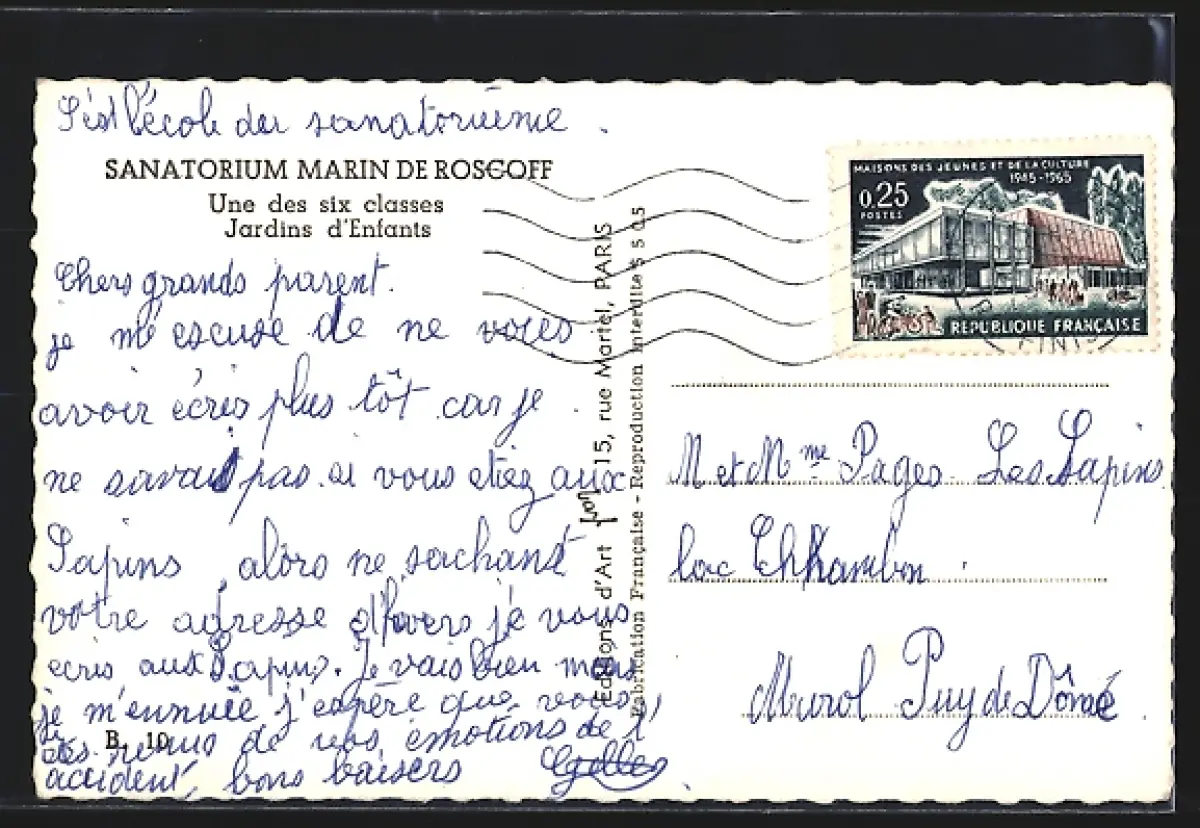 S'est l'école du sanatorième .
SANATORIUM MARIN DE ROSCOFF
Une des six classes
Jardins d'Enfants
Chers grands parent.
je m'escuse de ne vous
avoir écris plus tôt car je
ne savais pas si vous etiez aux
Sapins , alors ne sachant
votre adresse d'hivers je vous
ecris aux Sapins. Je vais bien mais
je m'ennuie j'espère que vous
êtes remis de vos émotions de l'
accident, bons baisers Gilles
B. 10
Editions d'Art Yvon 15, rue Martel, PARIS
Fabrication Française - Reproduction interdite 5 5 05
MAISONS DES JEUNES ET DE LA CULTURE
1945-1965
0,25
POSTES
REPUBLIQUE FRANÇAISE
M et Mme Pages Les Sapins
lac Chhambon .
Murol Puy de Dôme .